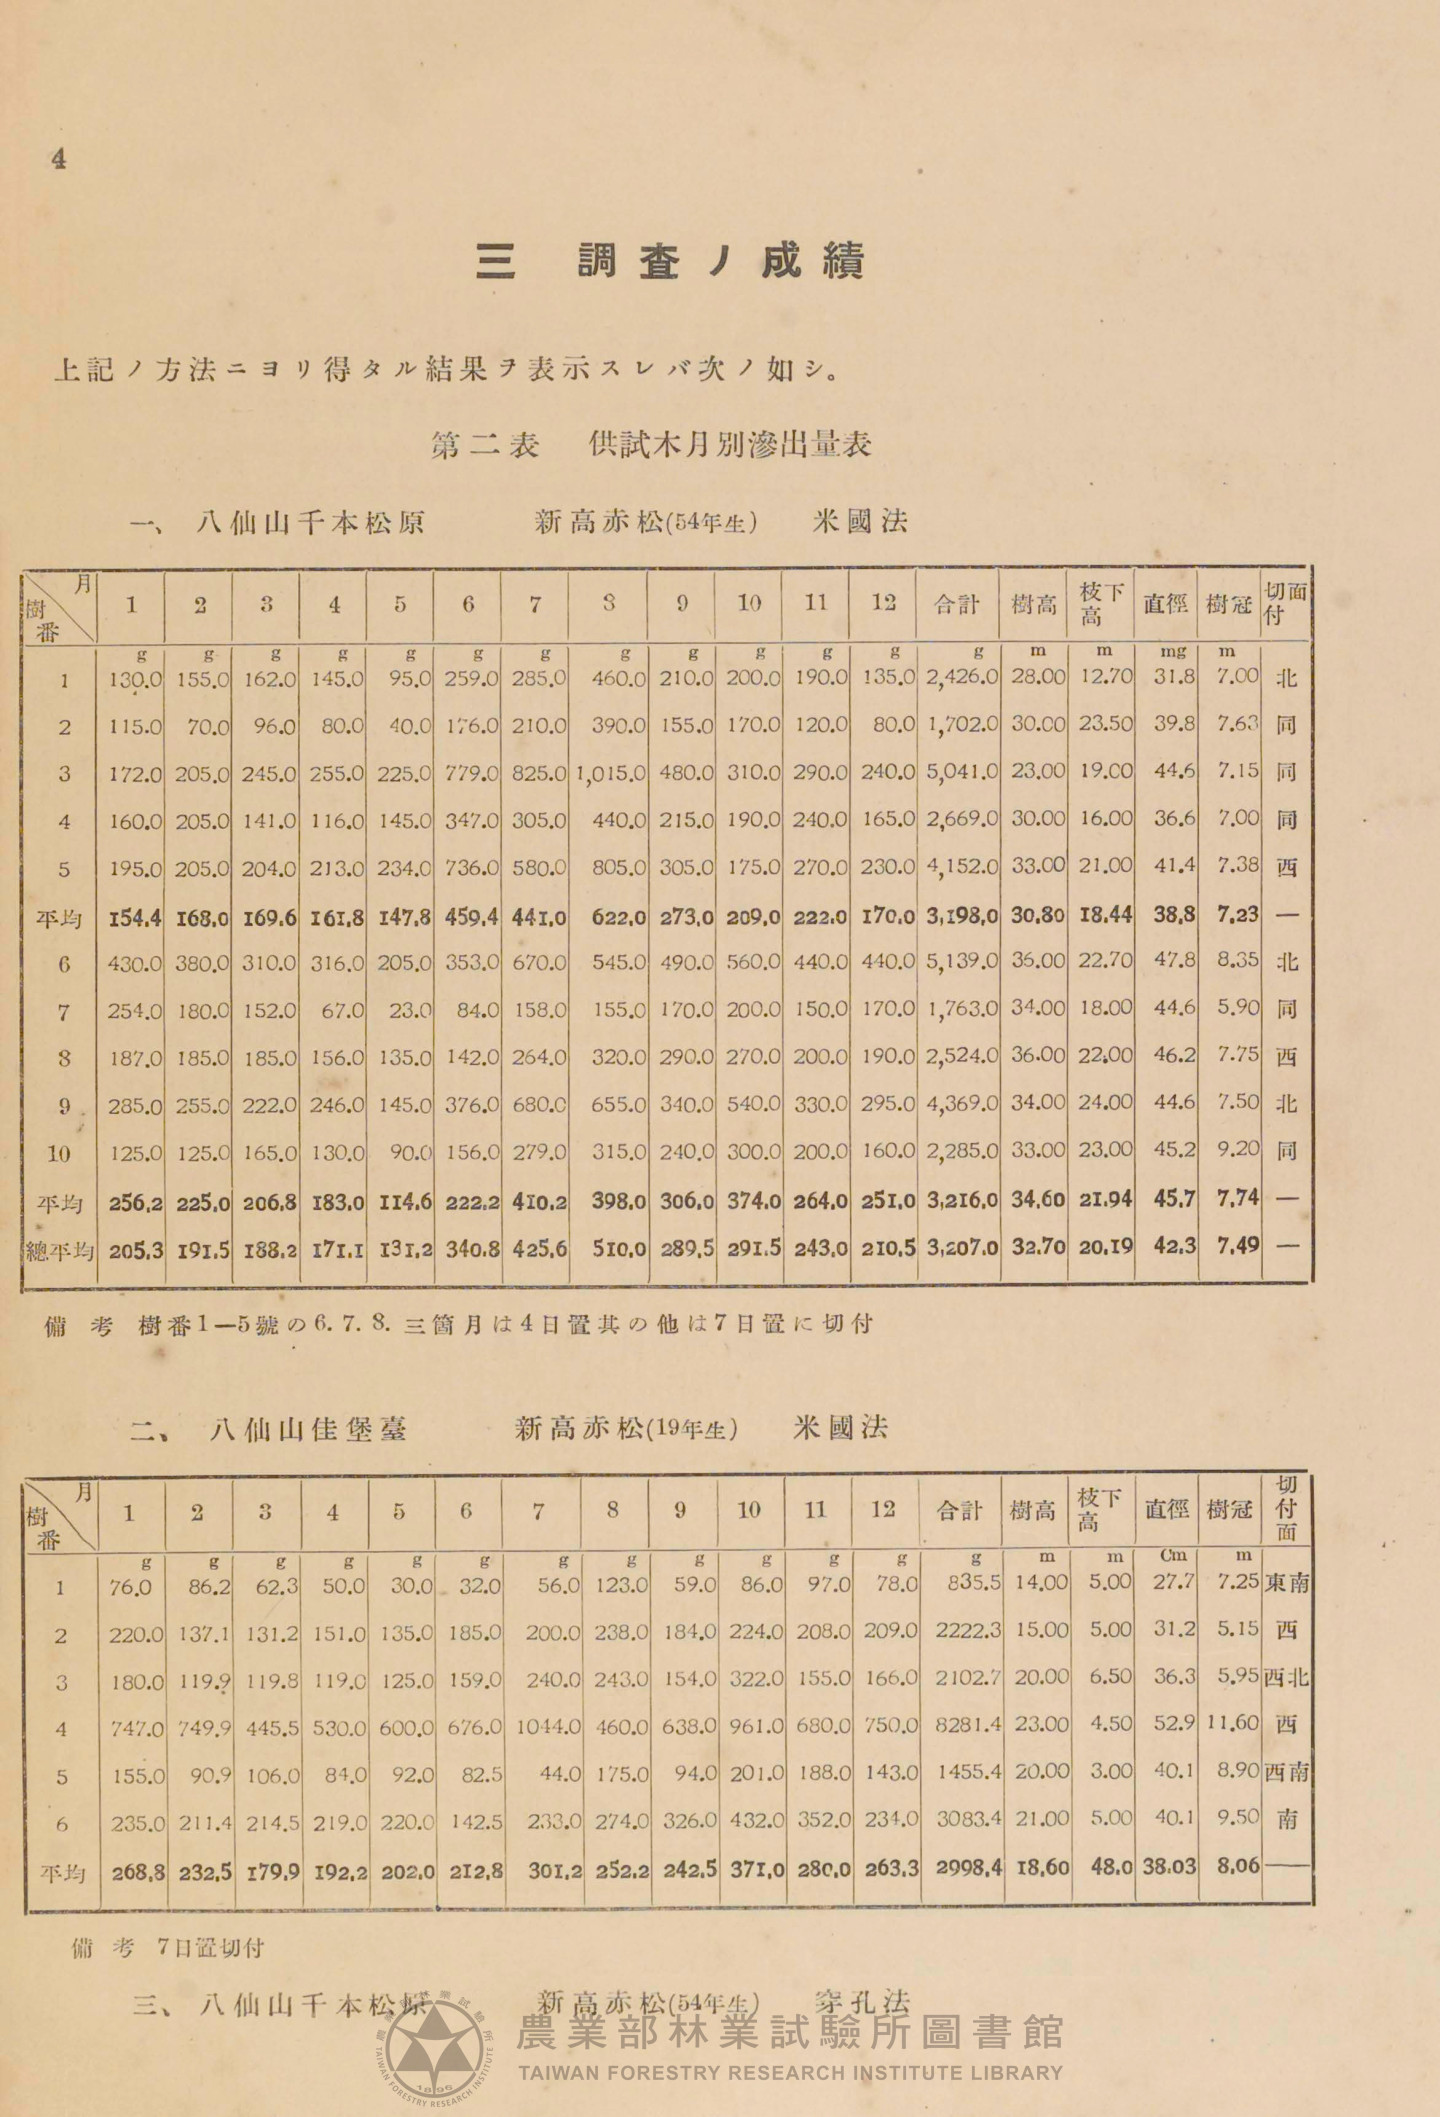 4
三 調査ノ成績
上記ノ方法ニヨリ得タル結果ヲ表示スレバ次ノ如シ。
第二表 供試木月別滲出量表
一、 八仙山千本松原 新高赤松(54年生) 米國法
樹番 月 1 2 3 4 5 6 7 8 9 10 11 12 合計 樹高 枝下高 直徑 樹冠 切付面
g g g g g g g g g g g g g m m mg m
1 130.0 155.0 162.0 145.0 95.0 259.0 285.0 460.0 210.0 200.0 190.0 135.0 2,426.0 28.00 12.70 31.8 7.00 北
2 115.0 70.0 96.0 80.0 40.0 176.0 210.0 390.0 155.0 170.0 120.0 80.0 1,702.0 30.00 23.50 39.8 7.63 同
3 172.0 205.0 245.0 255.0 225.0 779.0 825.0 1,015.0 480.0 310.0 290.0 240.0 5,041.0 23.00 19.00 44.6 7.15 同
4 160.0 205.0 141.0 116.0 145.0 347.0 305.0 440.0 215.0 190.0 240.0 165.0 2,669.0 30.00 16.00 36.6 7.00 同
5 195.0 205.0 204.0 213.0 234.0 736.0 580.0 805.0 305.0 175.0 270.0 230.0 4,152.0 33.00 21.00 41.4 7.38 西
平均 154.4 168.0 169.6 161.8 147.8 459.4 441.0 622.0 273.0 209.0 222.0 170.0 3,198.0 30.80 18.44 38.8 7.23 —
6 430.0 380.0 310.0 316.0 205.0 353.0 670.0 545.0 490.0 560.0 440.0 440.0 5,139.0 36.00 22.70 47.8 8.35 北
7 254.0 180.0 152.0 67.0 23.0 84.0 158.0 155.0 170.0 200.0 150.0 170.0 1,763.0 34.00 18.00 44.6 5.90 同
8 187.0 185.0 185.0 156.0 135.0 142.0 264.0 320.0 290.0 270.0 200.0 190.0 2,524.0 36.00 22.00 46.2 7.75 西
9 285.0 255.0 222.0 246.0 145.0 376.0 680.0 655.0 340.0 540.0 330.0 295.0 4,369.0 34.00 24.00 44.6 7.50 北
10 125.0 125.0 165.0 130.0 90.0 156.0 279.0 315.0 240.0 300.0 200.0 160.0 2,285.0 33.00 23.00 45.2 9.20 同
平均 256.2 225.0 206.8 183.0 114.6 222.2 410.2 398.0 306.0 374.0 264.0 251.0 3,216.0 34.60 21.94 45.7 7.74 —
總平均 205.3 191.5 188.2 171.1 131.2 340.8 425.6 510.0 289.5 291.5 243.0 210.5 3,207.0 32.70 20.19 42.3 7.49 —
備考 樹番1—5號の6. 7. 8. 三箇月は4日置其の他は7日置に切付
二、 八仙山佳堡臺 新高赤松(19年生) 米國法
樹番 月 1 2 3 4 5 6 7 8 9 10 11 12 合計 樹高 枝下高 直徑 樹冠 切付面
g g g g g g g g g g g g g m m Cm m
1 76.0 86.2 62.3 50.0 30.0 32.0 56.0 123.0 59.0 86.0 97.0 78.0 835.5 14.00 5.00 27.7 7.25 東南
2 220.0 137.1 131.2 151.0 135.0 185.0 200.0 238.0 184.0 224.0 208.0 209.0 2222.3 15.00 5.00 31.2 5.15 西
3 180.0 119.9 119.8 119.0 125.0 159.0 240.0 243.0 154.0 322.0 155.0 166.0 2102.7 20.00 6.50 36.3 5.95 西北
4 747.0 749.9 445.5 530.0 600.0 676.0 1044.0 460.0 638.0 961.0 680.0 750.0 8281.4 23.00 4.50 52.9 11.60 西
5 155.0 90.9 106.0 84.0 92.0 82.5 44.0 175.0 94.0 201.0 188.0 143.0 1455.4 20.00 3.00 40.1 8.90 西南
6 235.0 211.4 214.5 219.0 220.0 142.5 233.0 274.0 326.0 432.0 352.0 234.0 3083.4 21.00 5.00 40.1 9.50 南
平均 268.8 232.5 179.9 192.2 202.0 212.8 301.2 252.2 242.5 371.0 280.0 263.3 2998.4 18.60 48.0 38.03 8.06 —
備考 7日置切付
三、 八仙山千本松原 新高赤松(54年生) 穿孔法
農業部林業試驗所圖書館
TAIWAN FORESTRY RESEARCH INSTITUTE LIBRARY
農業部林業試驗所
TAIWAN FORESTRY RESEARCH INSTITUTE
1895